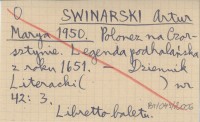 O SWINARSKI Artur
Marya 1950. Polonez na Czor-
sztynie. Legenda podhalańska
z roku 1651. – Dziennik
Literacki ( ) nr
42: 3.
Libretto baletu.